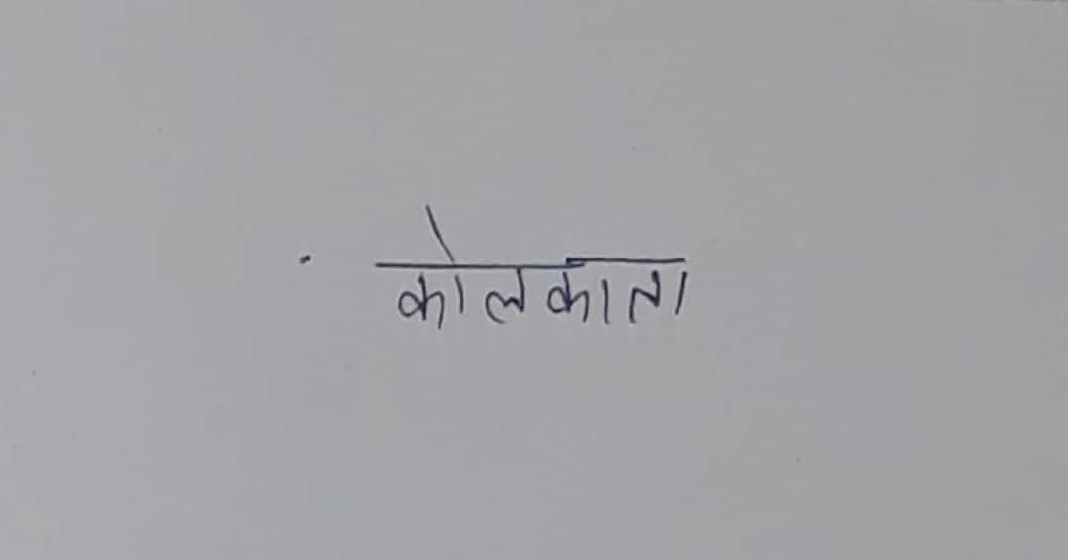 कोलकाता